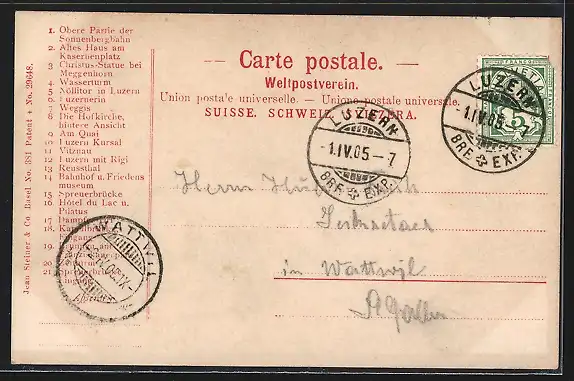 1. Obere Partie der
Sonnenbergbahn
2. Altes Haus am
Kasernenplatz
3 Christus-Statue bei
Meggenhorn
4. Wasserturm
5 Nöllitor in Luzern
6 Luzernerin
7 Weggis
8 Die Hofkirche,
hintere Ansicht
9 Am Quai
10 Luzern Kursal
11 Vitznau
12 Luzern mit Rigi
13 Reussthal
14 Bahnhof u. Friedens
museum
15 Spreuerbrücke
16 Hôtel du Lac u.
Pilatus
17
18
19
20
21
Jean Steiner & Co. Basel No. 381 Patent + No. 29648.
Carte postale.
Weltpostverein.
Union postale universelle. - Unione postale universale.
SUISSE. SCHWEIZ.
LUZERN
-1.IV.05-7
BRF. EXP.
LUZERN
-1.IV.05-7
BRF. EXP.
FRANCO
5
WATTWIL
Herrn
Sekretaer
in Wattwil
St Gallen